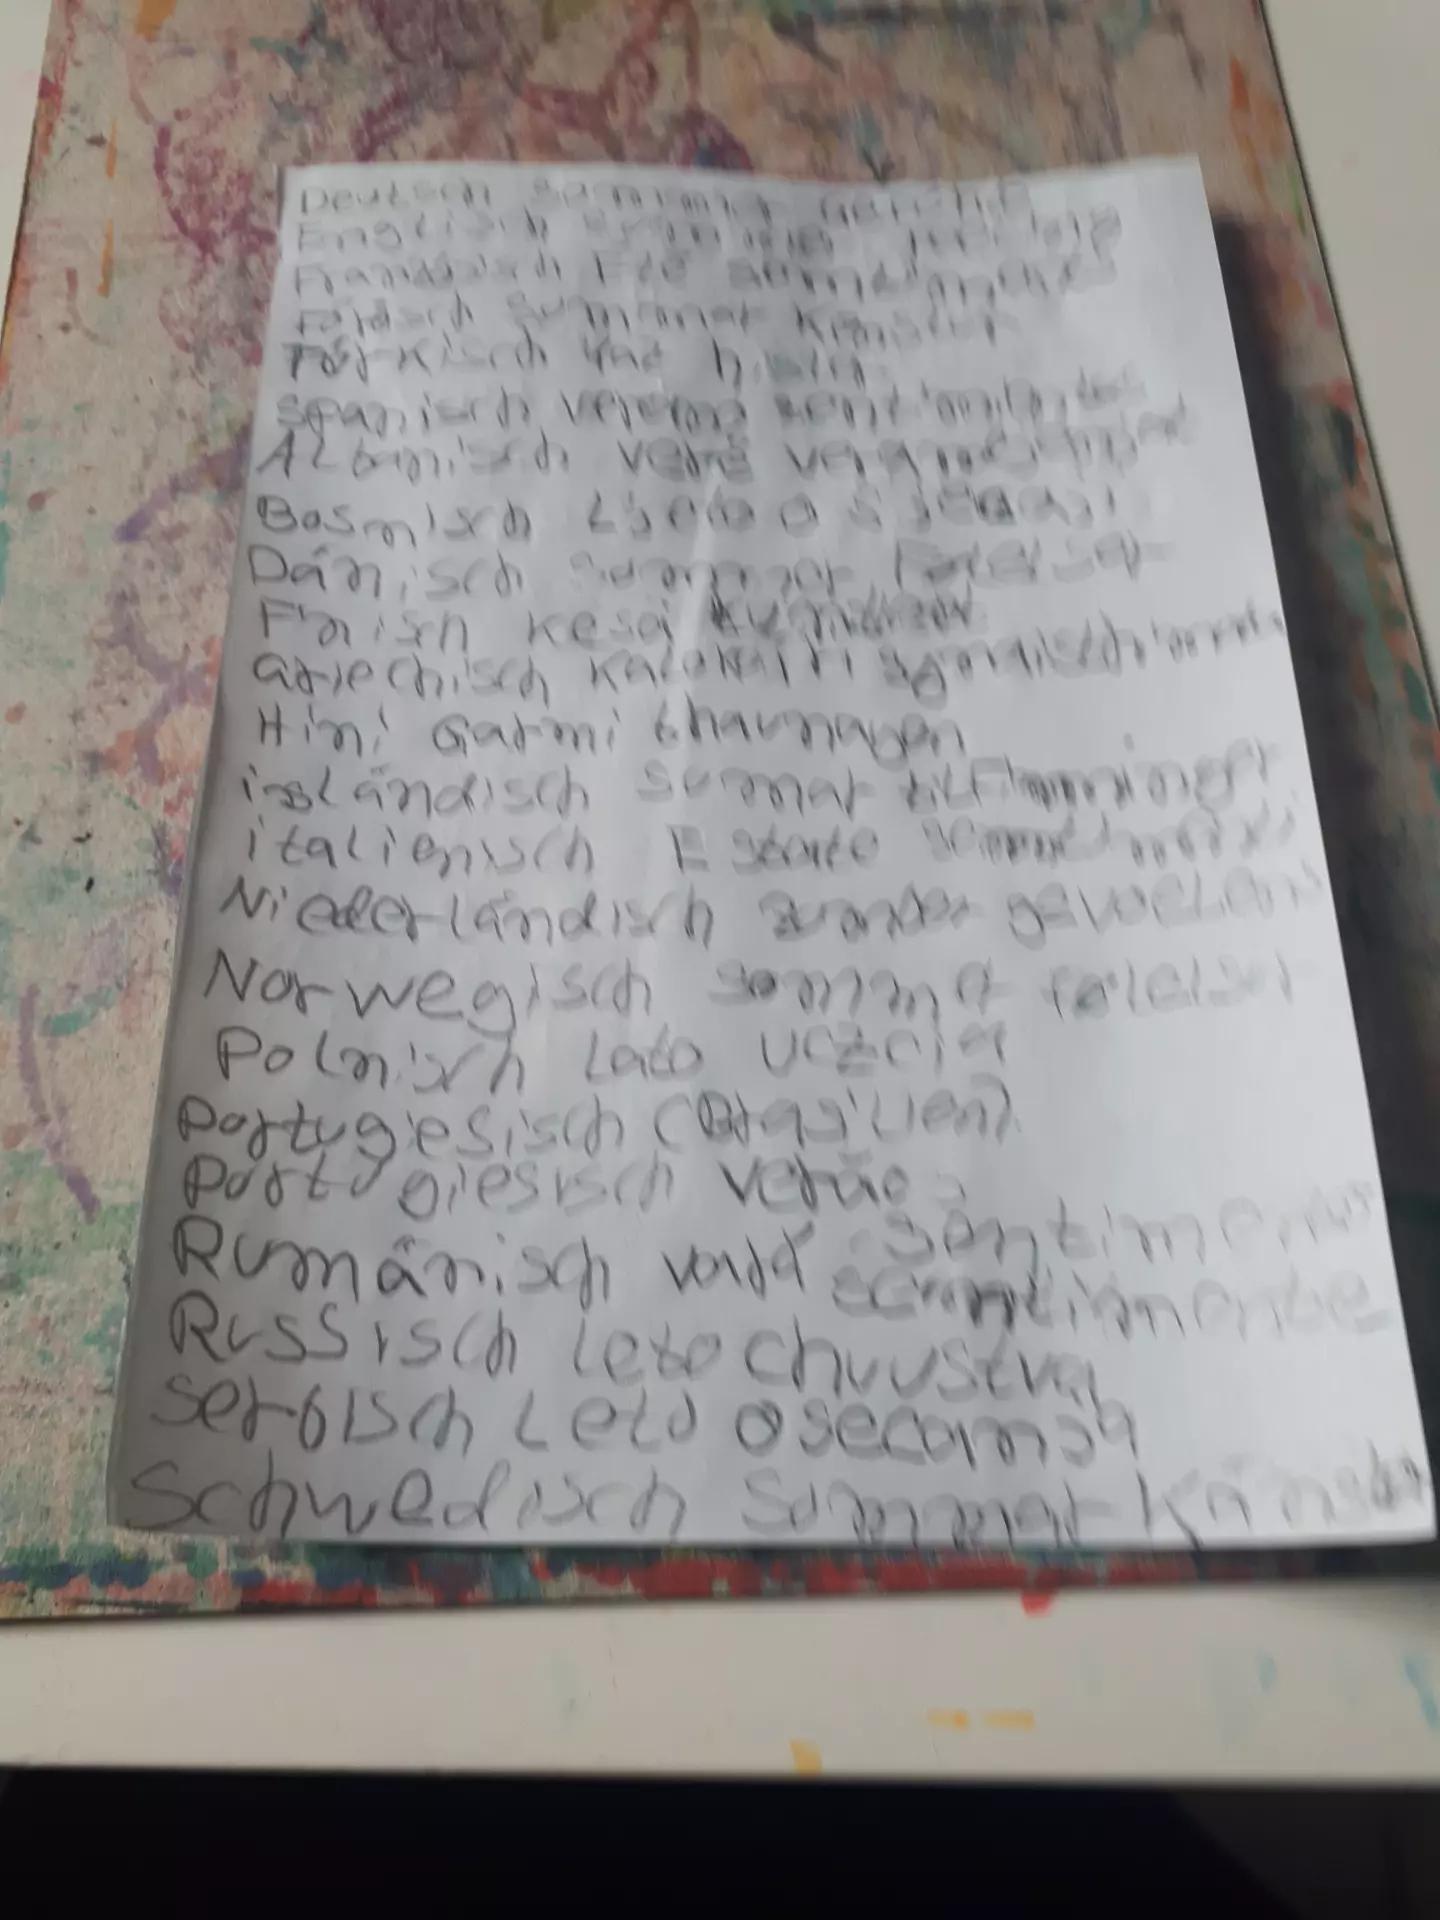 Deutsch Sommer Gefühle
Englisch Summer feelings
Französisch Eté sentiments
Sommar Kenslur
Türkisch Yaz hisler
spanisch verano sentimientos
Albanisch verë
Bosnisch Ljeto osjećaji
Dänisch sommer Følelser
Finisch kesä tunteet
Griechisch Kalokairi
Hini Garmi bhavnayen
isländisch sumar tilfinningar
italienisch Estate sentimenti
Niederländisch zomer gevoelens
Norwegisch sommer følelser
Polnisch Lato uczcia
Portugiesisch (Brasilien)
Portugiesisch verão
Rumänisch vară sentimentos
sentimente
Russisch Leto chuvstva
serbisch Leto osecanja
Schwedisch Sommar Känslor